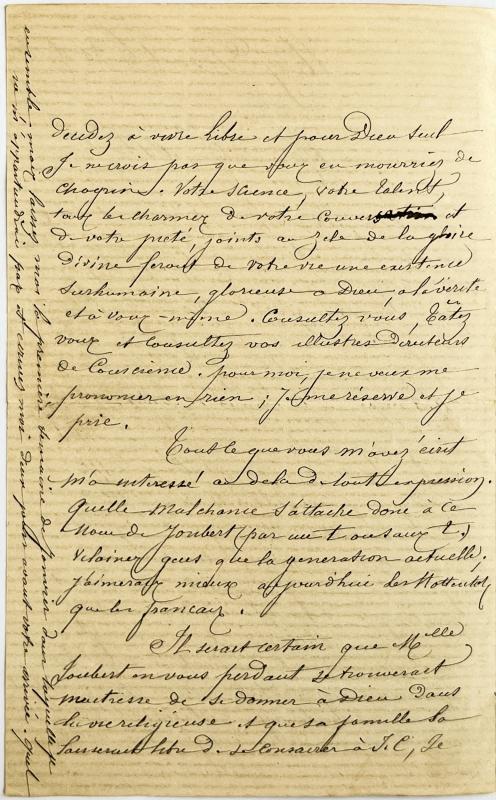 decidez à vivre libre et pour Dieu seul
Je ne crois pas que vous en mourriez de
chagrin. Votre science, votre talent,
tous les charmes de votre conversation et
de votre pieté, joints au zele de la gloire
divine feront de votre vie une existence
surhumaine, glorieuse a Dieu, a la verité
et à vous-même. Consultez vous, Tatez
vous et consultez vos illustres Directeurs
de Conscience. pour moi, je ne veux me
prononcer en rien ; Je me réserve et je
prie.
Tout le que vous m'avez écrit
m'a interessé au dela de toute expression.
Quelle Malchance s'attache donc à ce
Nom de Joubert (par un t ou aux t.)
Vilaines gens que la generation actuelle,
J'aimerais mieux aujourdhui les Hottentots
que les francais.
Il serait certain que Melle
Joubert en vous perdant se trouverait
maitresse de se donner à Dieu dans
la vie religieuse et que sa famille la
laisserait libre de se consacrer à J.C, Je
ensemble mais laissez moi la première semaine de Janvier dans laquelle je
ne m'appartiendrai pas et ecrivez moi deux jours avant votre arrivée. Quel